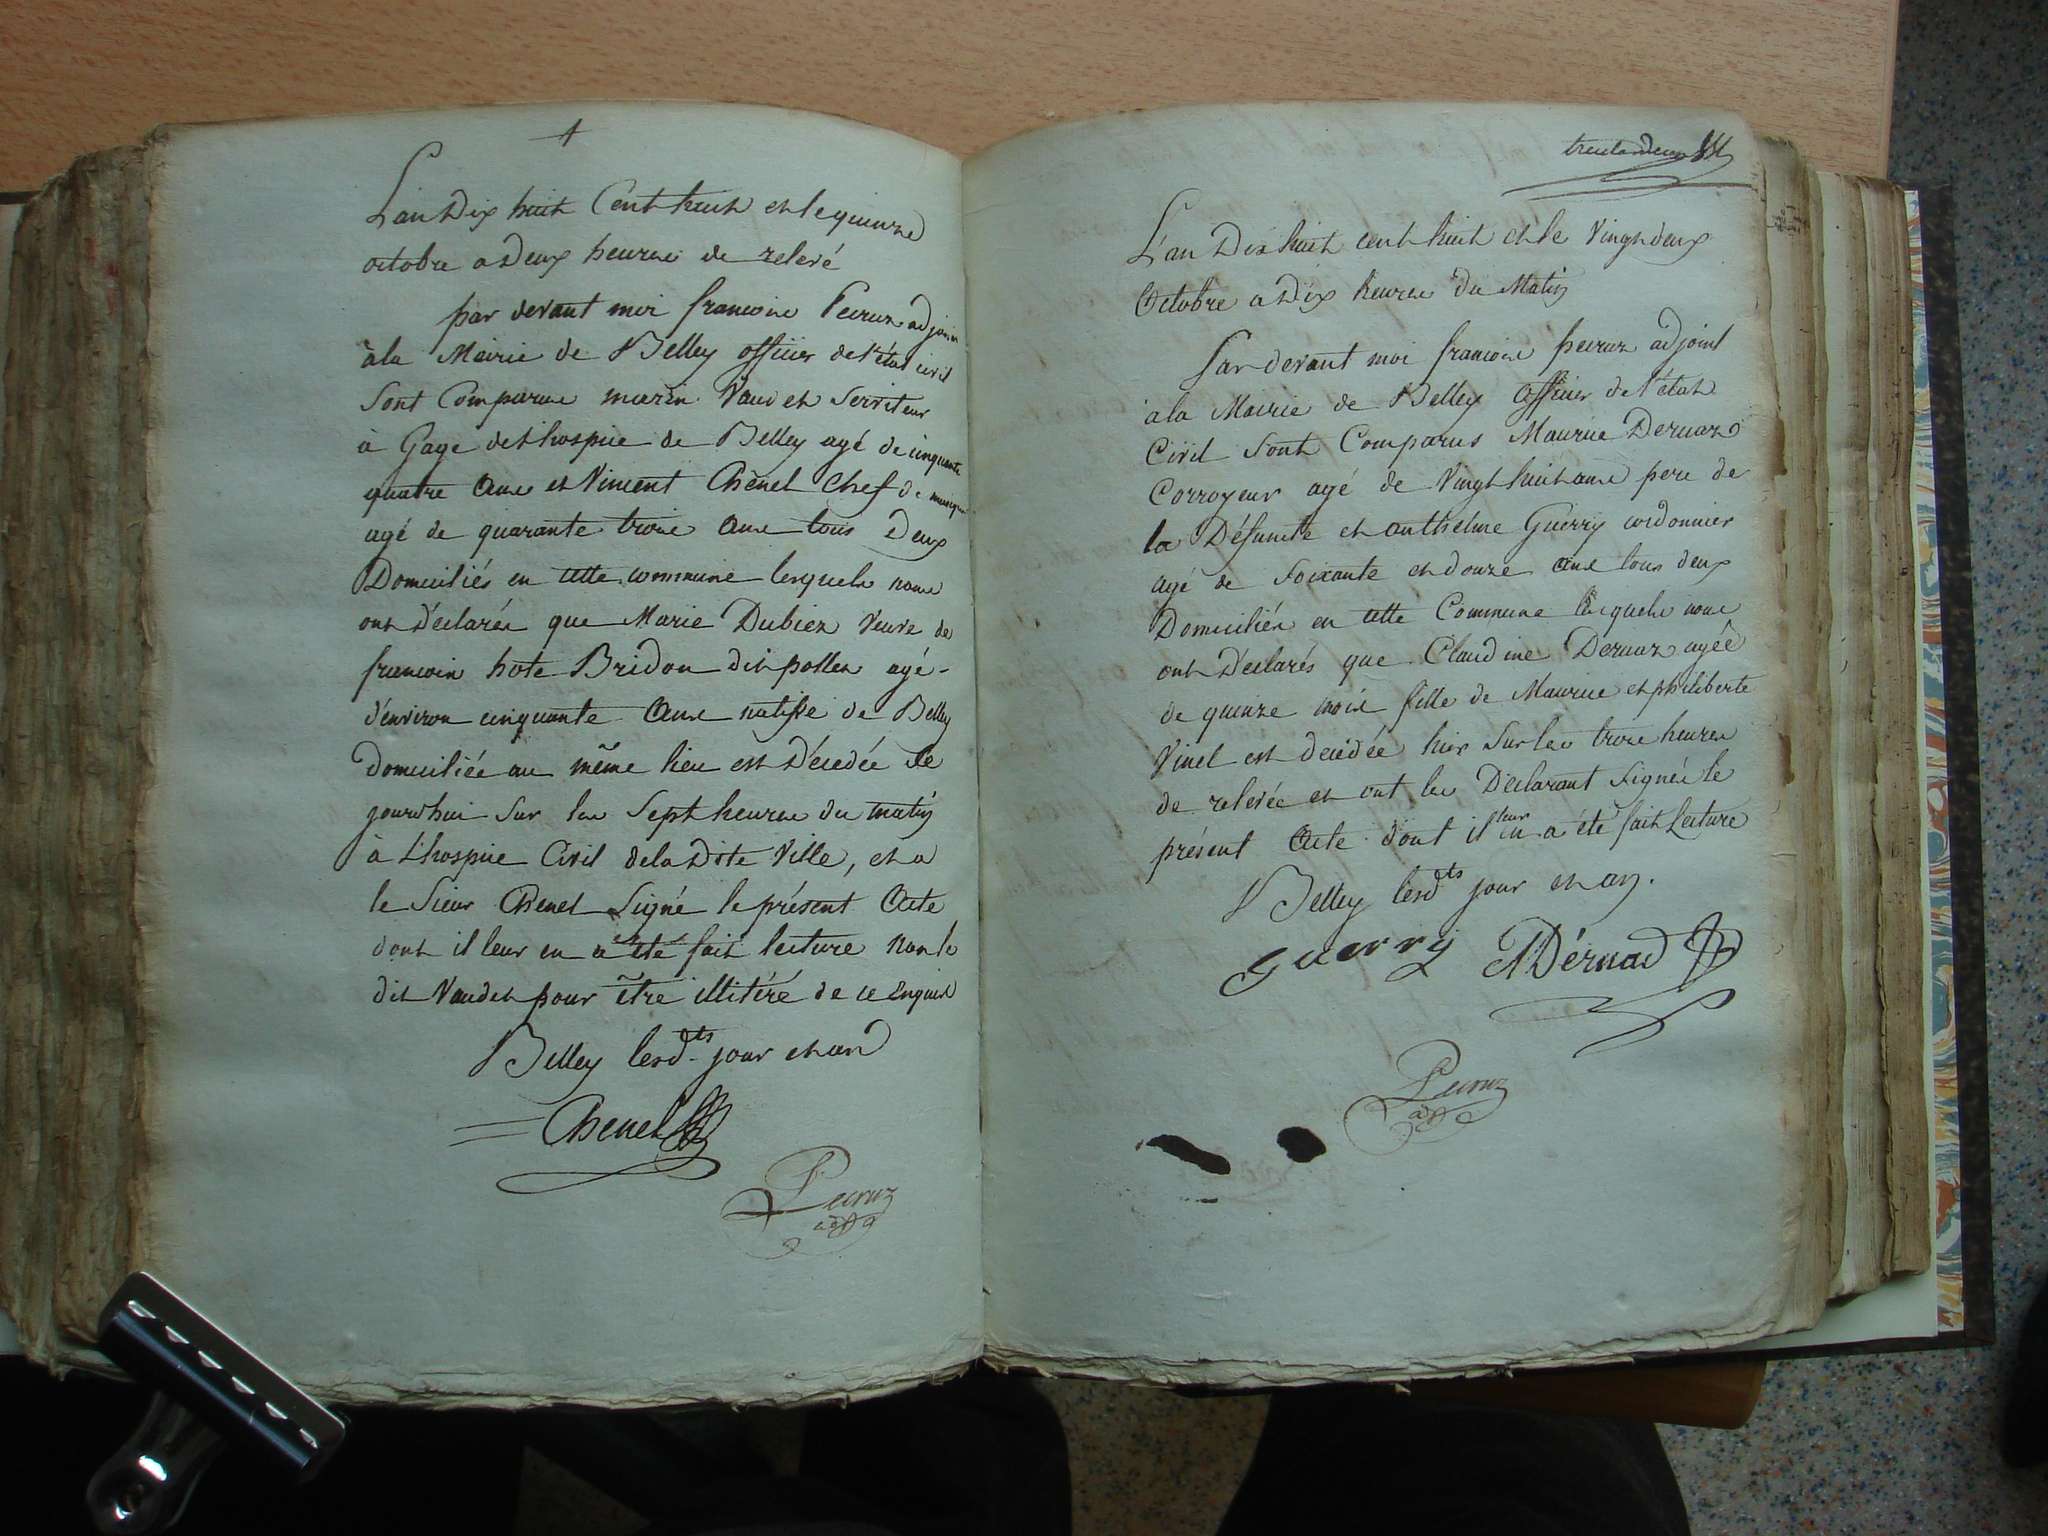 L'an Dix huit Cent huit et le quinze
octobre a Deux heures de relevé
par devant moi francois Pecruz adjoint
à la Mairie de Belley officier de l'état civil
Sont Comparus marin Vaudet Serviteur
à Gage de l'hospice de Belley agé de cinquante
quatre ans et Vincent Chênel Chef de musique
agé de quarante trois ans tous Deux
Domiciliés en cette commune lesquels nous
ont déclarés que Marie Dubiez Veuve de
francois hote Bridon dit pollez agé
d'environ cinquante ans natisse de Belley
domiciliée au même lieu est Décedée le
jourd'hui sur les Sept heures du matin
à L'hospice Civil de la Dite Ville, et a
le Sieur Chenel Signé le présent Acte
dont il leur en a été fait lecture non le
dit Vaudet pour être illitéré de ce Enquis
Belley lesdts jour et an
Chenel
Pecruz
adjt
trente deux
L'an Dix huit cent huit et le Vingt deux
Octobre a Dix heures du Matin
Par devant moi francois pecruz adjoint
à la Mairie de Belley Officier de l'état
Civil Sont Comparus Maurice Dernaz
Corroyeur agé de Vingt huit ans pere de
la Défunte et anthelme Guerry cordonnier
agé de Soixante et douze ans tous deux
Domiciliés en cette Commune lesquels nous
ont déclarés que Claudine Dernaz agée
de quinze mois fille de Maurice et philiberte
Vinel est decédée hier Sur les trois heures
de relevée et ont les Déclarant Signés le
présent Acte dont il leur en a été fait Lecture
Belley lesdts jour et an.
Guerry MDérnad
Pecruz
adjt